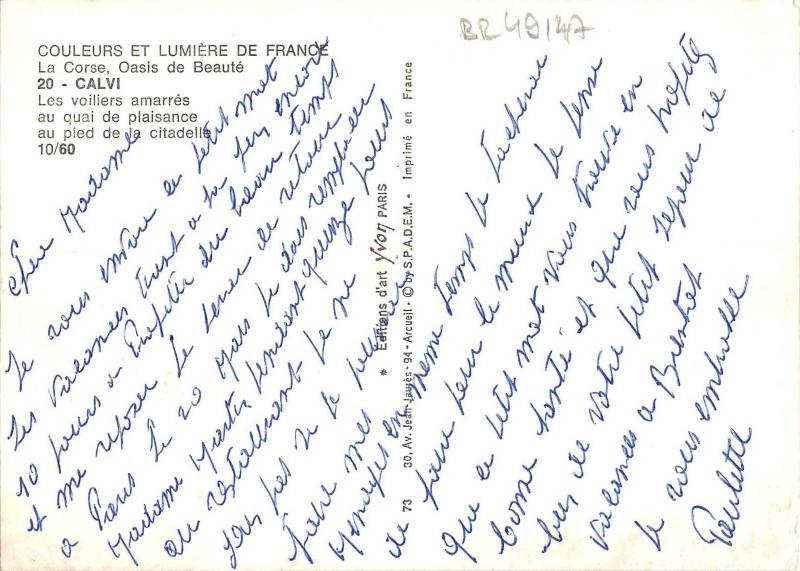 BR49147
COULEURS ET LUMIÈRE DE FRANCE
La Corse, Oasis de Beauté
20 - CALVI
Les voiliers amarrés
au quai de plaisance
au pied de la citadelle
10/60
* Editions d'art yvon PARIS
73 30, Av. Jean-Jaurès - 94 - Arcueil - © by S.P.A.D.E.M. - Imprimé en France
Chère Madame
Je vous envoie ce petit mot
les vacances tirent a la fin encore
10 jours a profiter du beau temps
et me reposer je serer de retour
a Paris le 20 Mars je dois remplacer
Madame Martin pendant quinze jours
au restaurant je ne
sais pas si je pourrais
faire mes
ménages en même temps je tacherer
de faire pour le mieux je pense
que ce petit mot vous trouve en
bonne santé et que vous profitez
bien de votre petit sejour de
vacances a
je vous embrasse
Paulette